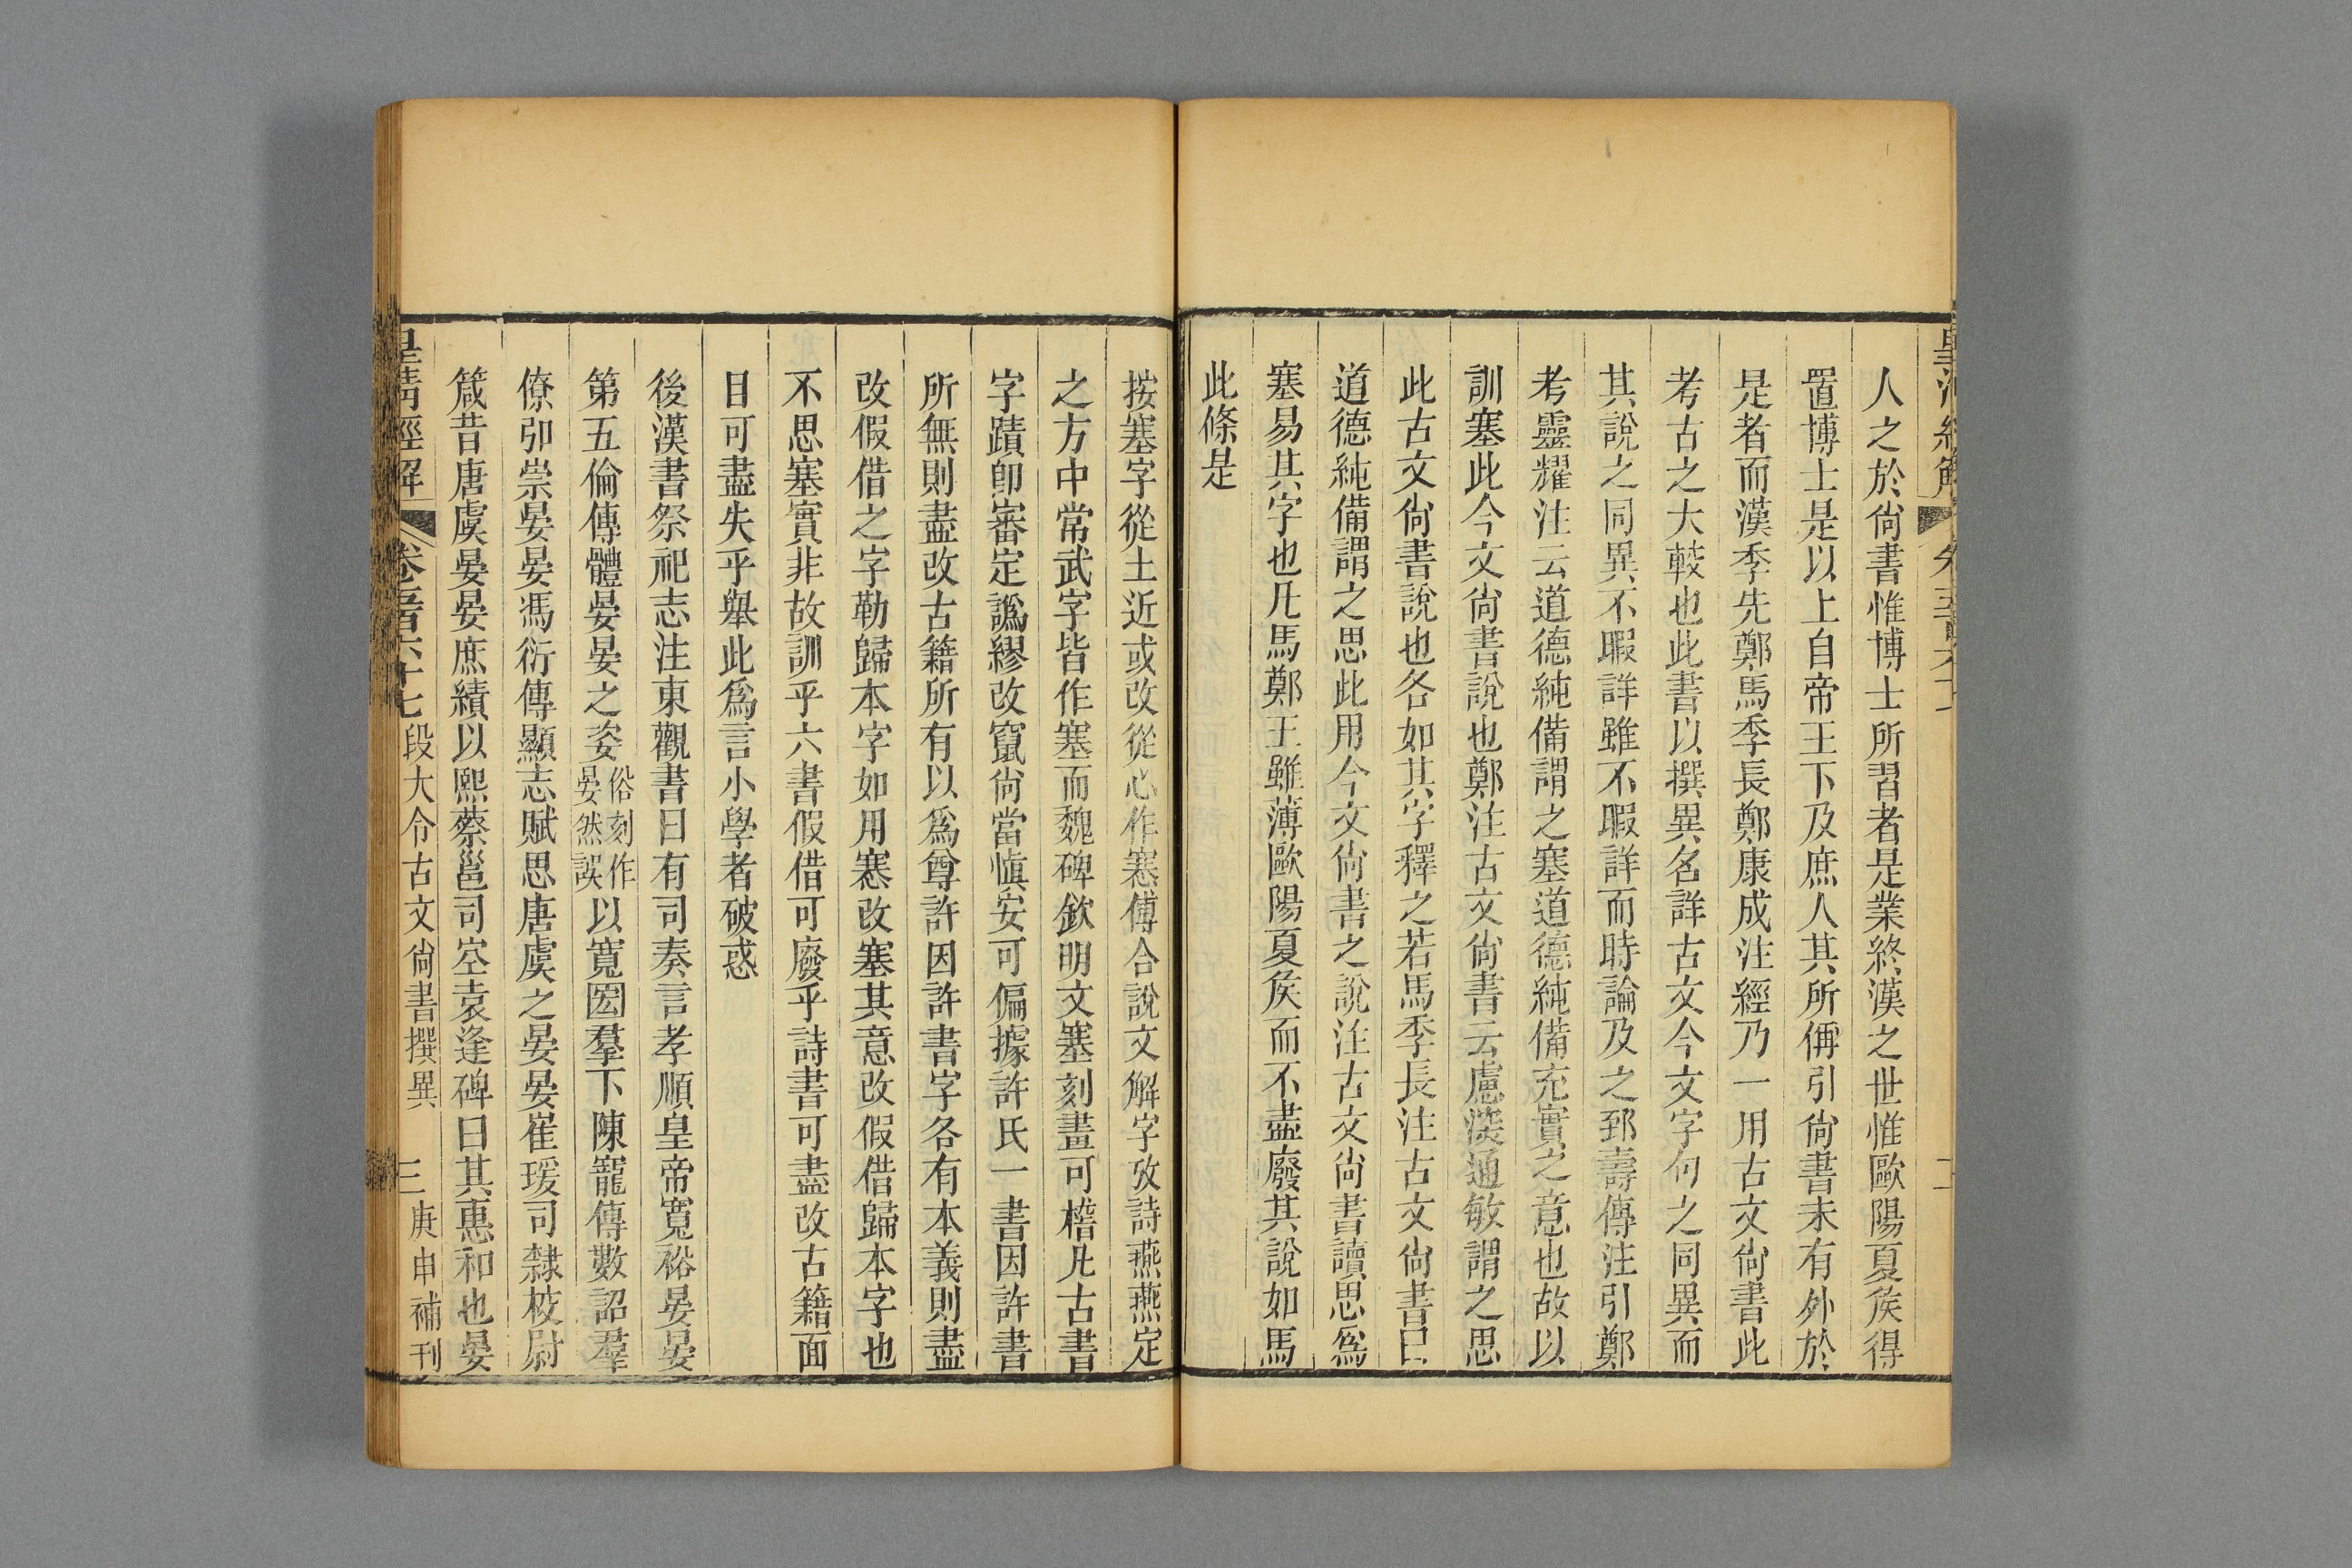 人之於尙書惟博士所習者是業終漢之世惟歐陽夏矦得
置博士是以上自帝王下及庶人其所偁引尙書未有外於
是者而漢季先鄭馬季長鄭康成注經乃一用古文尙書此
考古之大較也此書以撰異名詳古文今文字句之同異而
其說之同異不暇詳雖不暇詳而時論及之郅壽傳注引鄭
考靈耀注云道德純備謂之塞道德純備充實之意也故以
訓塞此今文尙書說也鄭注古文尙書云慮深通敏謂之思
此古文尙書說也各如其字釋之若馬季長注古文尙書曰
道德純備謂之思此用今文尙書之說注古文尙書讀思爲
塞易其字也凡馬鄭王雖薄歐陽夏矦而不盡廢其說如馬
此條是
按塞字從土近或改從心作㥶傅合說文解字攷詩燕燕定
之方中常武字皆作塞而魏碑欽明文塞刻畫可楷凡古書
字蹟卽審定譌繆改竄尙當愼安可偏據許氏一書因許書
所無則盡改古籍所有以爲尊許因許書字各有本義則盡
改假借之字勒歸本字如用㥶改塞其意改假借歸本字也
不思塞實非故訓乎六書假借可廢乎詩書可盡改古籍面
目可盡失乎舉此爲言小學者破惑
後漢書祭祀志注東觀書曰有司奏言孝順皇帝寬裕晏晏
第五倫傳體晏晏之姿俗刻作晏然誤以寬囹羣下陳寵傳數詔羣
僚卬崇晏晏馮衍傳顯志賦思唐虞之晏晏崔瑗司隸校尉
箴昔唐虞晏晏庶績以熙蔡邕司空袁逢碑曰其惠和也晏
皇淸經解 卷五百六十七 段大令古文尙書撰異 三 庚申補刊